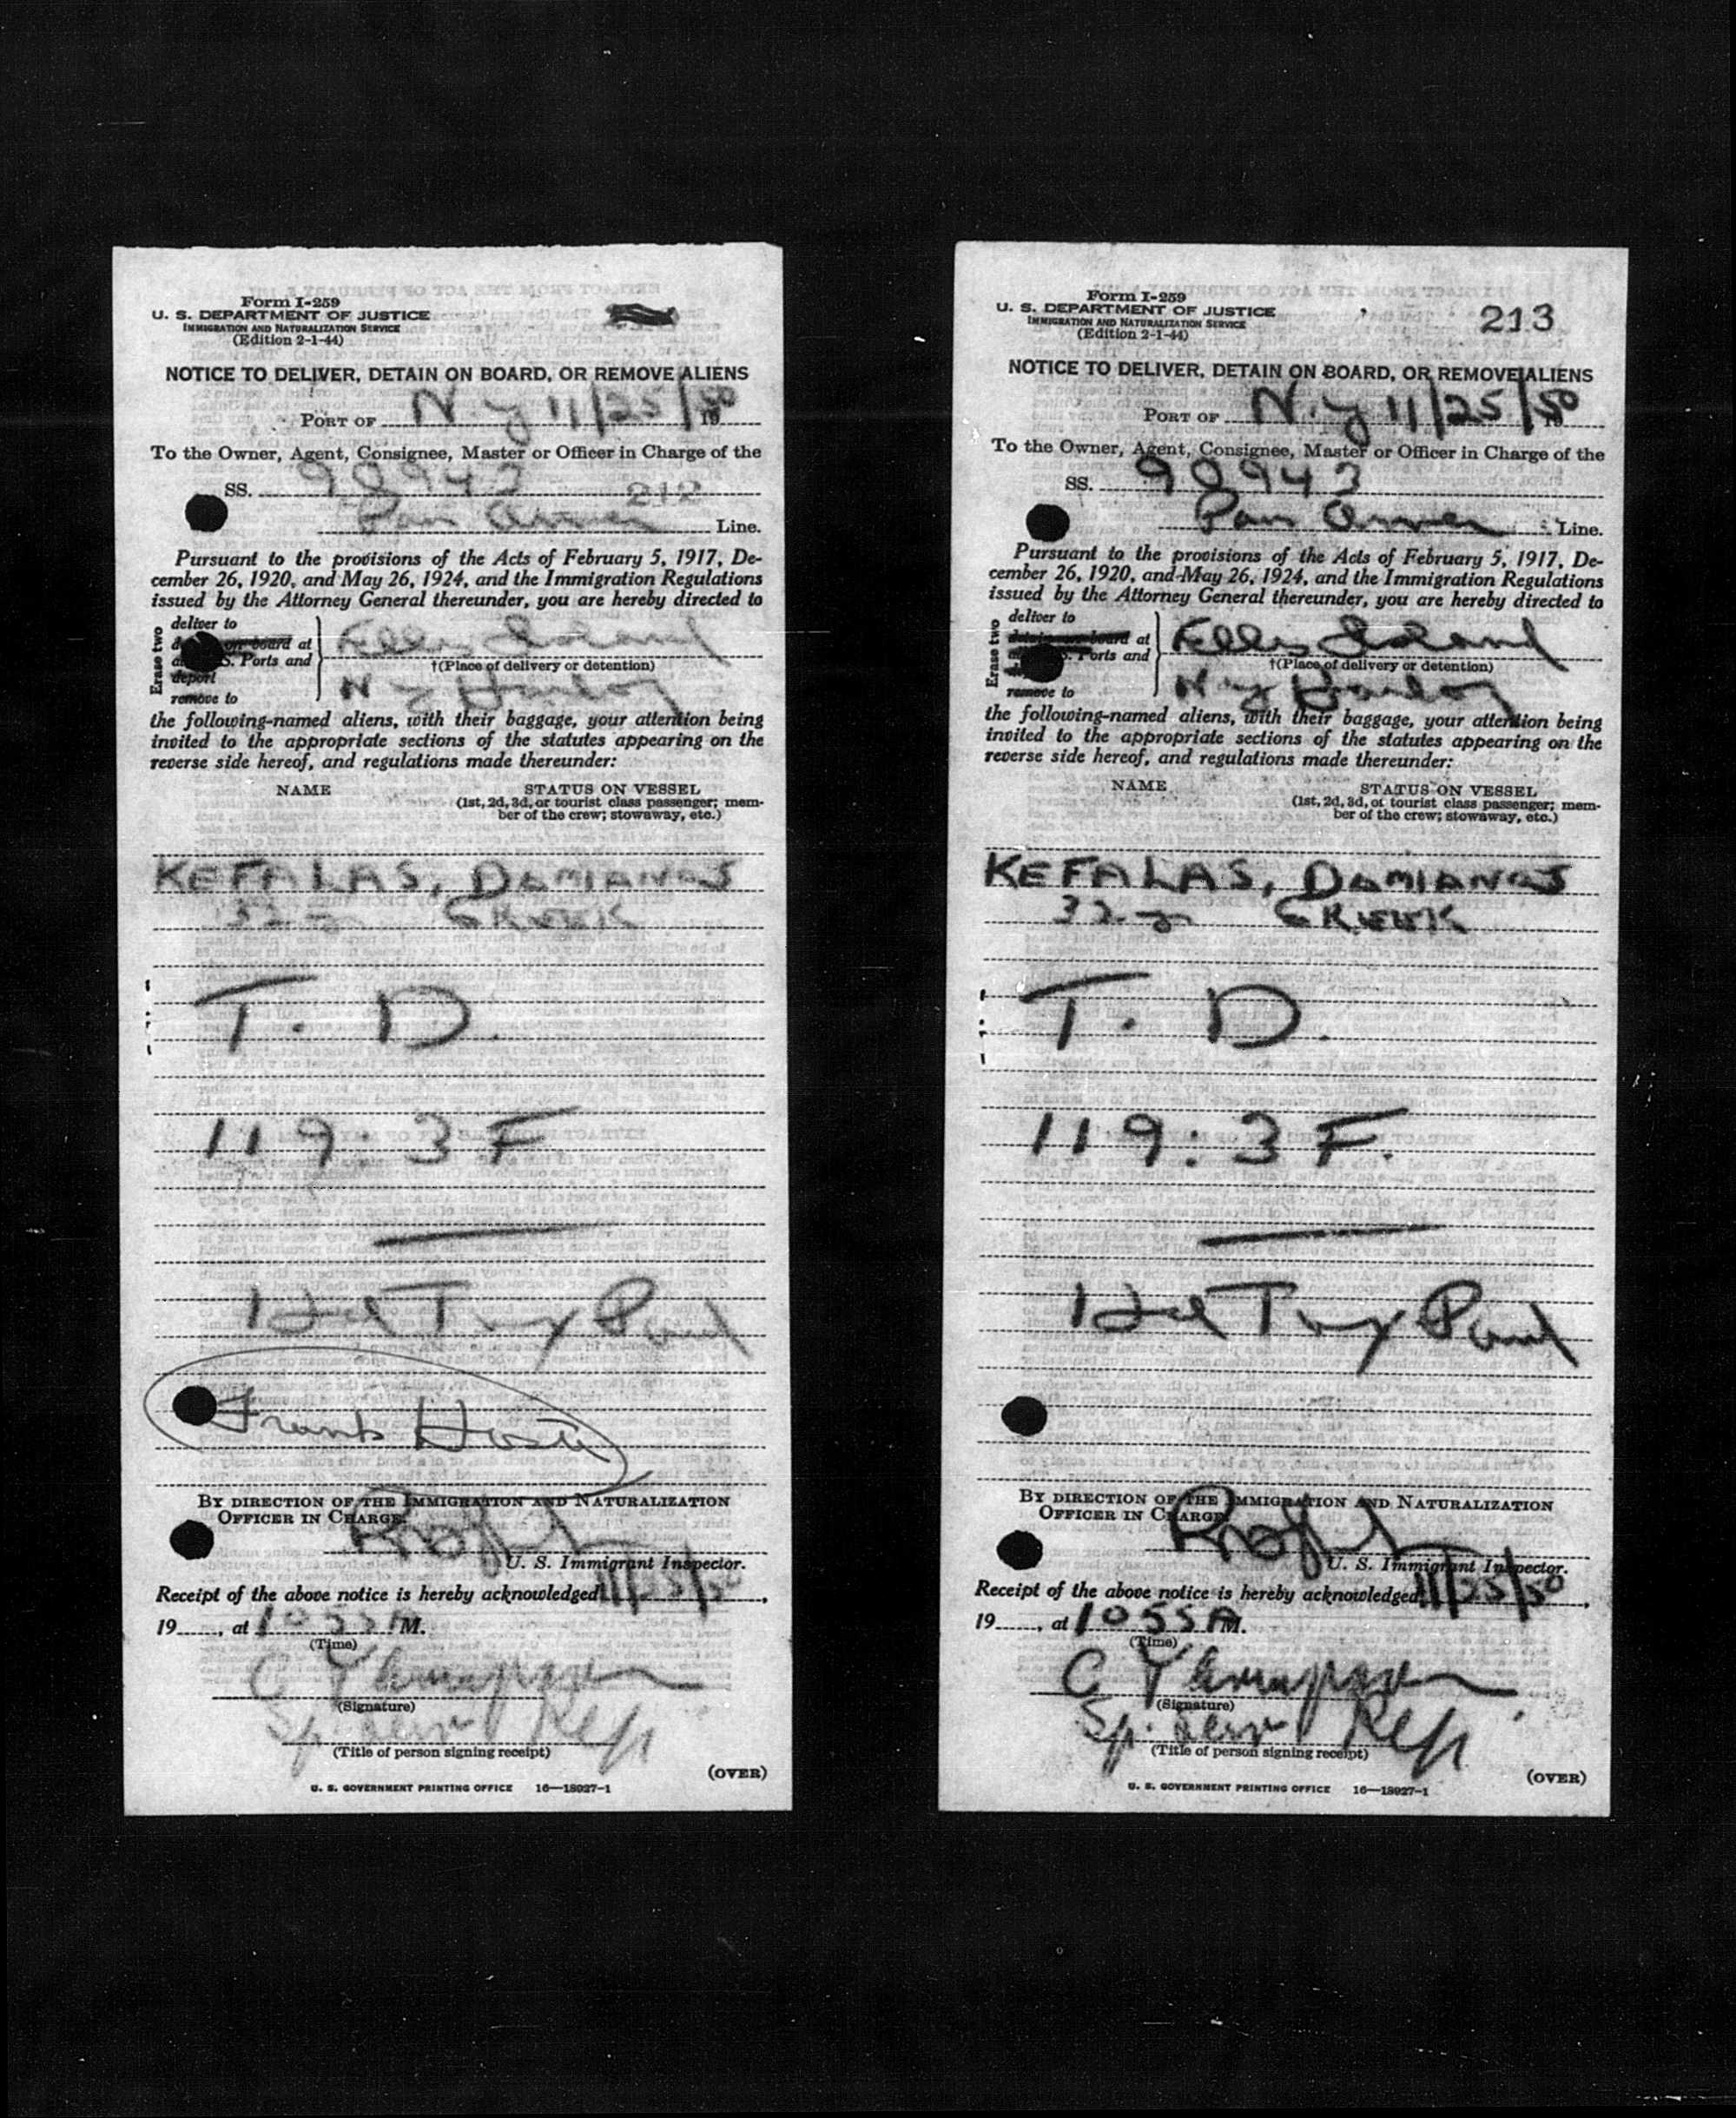 Form I-259
U. S. DEPARTMENT OF JUSTICE
IMMIGRATION AND NATURALIZATION SERVICE
(Edition 2-1-44)
NOTICE TO DELIVER, DETAIN ON BOARD, OR REMOVE ALIENS
PORT OF N.Y 11/25/50 19
To the Owner, Agent, Consignee, Master or Officer in Charge of the
SS. 90943 212
Pan Amer Line.
Pursuant to the provisions of the Acts of February 5, 1917, De-
cember 26, 1920, and May 26, 1924, and the Immigration Regulations
issued by the Attorney General thereunder, you are hereby directed to
Erase two
deliver to
on board at
S. Ports and
deport
remove to
Ellis Island
†(Place of delivery or detention)
N Y Harbor
the following-named aliens, with their baggage, your attention being
invited to the appropriate sections of the statutes appearing on the
reverse side hereof, and regulations made thereunder:
NAME STATUS ON VESSEL
(1st, 2d, 3d, or tourist class passenger; mem-
ber of the crew; stowaway, etc.)
KEFALAS, DAMIANOS
32 y GREEK
T. D.
119.3 F
Frank
BY DIRECTION OF THE IMMIGRATION AND NATURALIZATION
OFFICER IN CHARGE.
U. S. Immigrant Inspector.
Receipt of the above notice is hereby acknowledged 11/25/50,
19 , at 1055 AM.
(Time)
C Thompson
(Signature)
Sp. Rep
(Title of person signing receipt)
(OVER)
U. S. GOVERNMENT PRINTING OFFICE 16—18927-1
Form I-259
U. S. DEPARTMENT OF JUSTICE
IMMIGRATION AND NATURALIZATION SERVICE
(Edition 2-1-44)
213
NOTICE TO DELIVER, DETAIN ON BOARD, OR REMOVE ALIENS
PORT OF N.Y 11/25/50 19
To the Owner, Agent, Consignee, Master or Officer in Charge of the
SS. 90943
Pan Amer Line.
Pursuant to the provisions of the Acts of February 5, 1917, De-
cember 26, 1920, and May 26, 1924, and the Immigration Regulations
issued by the Attorney General thereunder, you are hereby directed to
Erase two
deliver to
detain on board at
S. Ports and
remove to
Ellis Island
†(Place of delivery or detention)
N Y Harbor
the following-named aliens, with their baggage, your attention being
invited to the appropriate sections of the statutes appearing on the
reverse side hereof, and regulations made thereunder:
NAME STATUS ON VESSEL
(1st, 2d, 3d, or tourist class passenger; mem-
ber of the crew; stowaway, etc.)
KEFALAS, DAMIANOS
32 y GREEK
T. D.
119.3 F.
BY DIRECTION OF THE IMMIGRATION AND NATURALIZATION
OFFICER IN CHARGE.
U. S. Immigrant Inspector.
Receipt of the above notice is hereby acknowledged 11/25/50,
19 , at 1055 AM.
(Time)
C Thompson
(Signature)
Sp. Rep
(Title of person signing receipt)
(OVER)
U. S. GOVERNMENT PRINTING OFFICE 16—18927-1